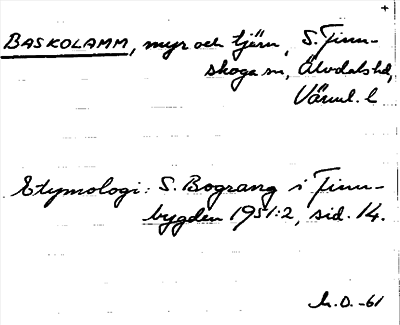 +
BASKOLAMM, myr och tjärn, S. Finn-
skoga sn, Älvdals hd,
Värml. l
Etymologi: S. Bograng i Finn-
bygden 1951:2, sid. 14.
M.O. -61